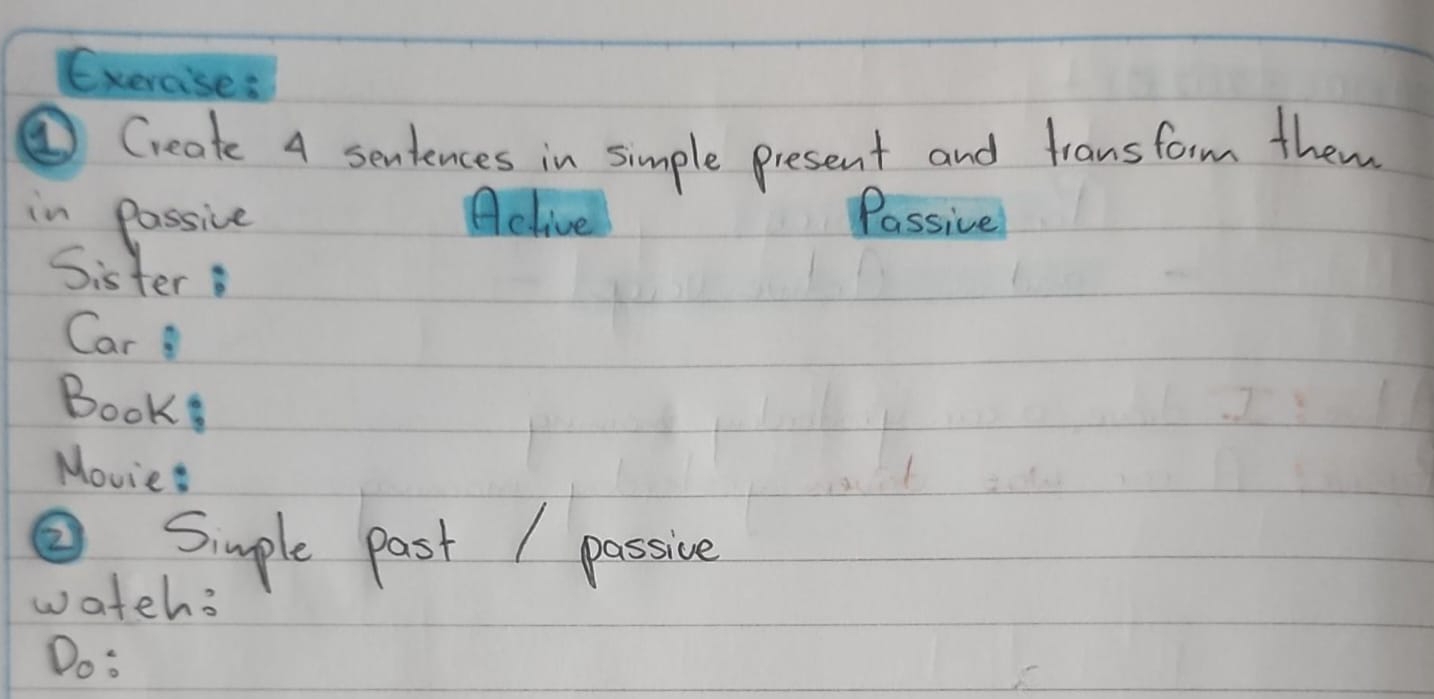 Exercise:
1 Create 4 sentences in simple present and transform them
in passive Active Passive
Sister:
Car:
Book:
Movie:
2 Simple past / passive
watch:
Do: